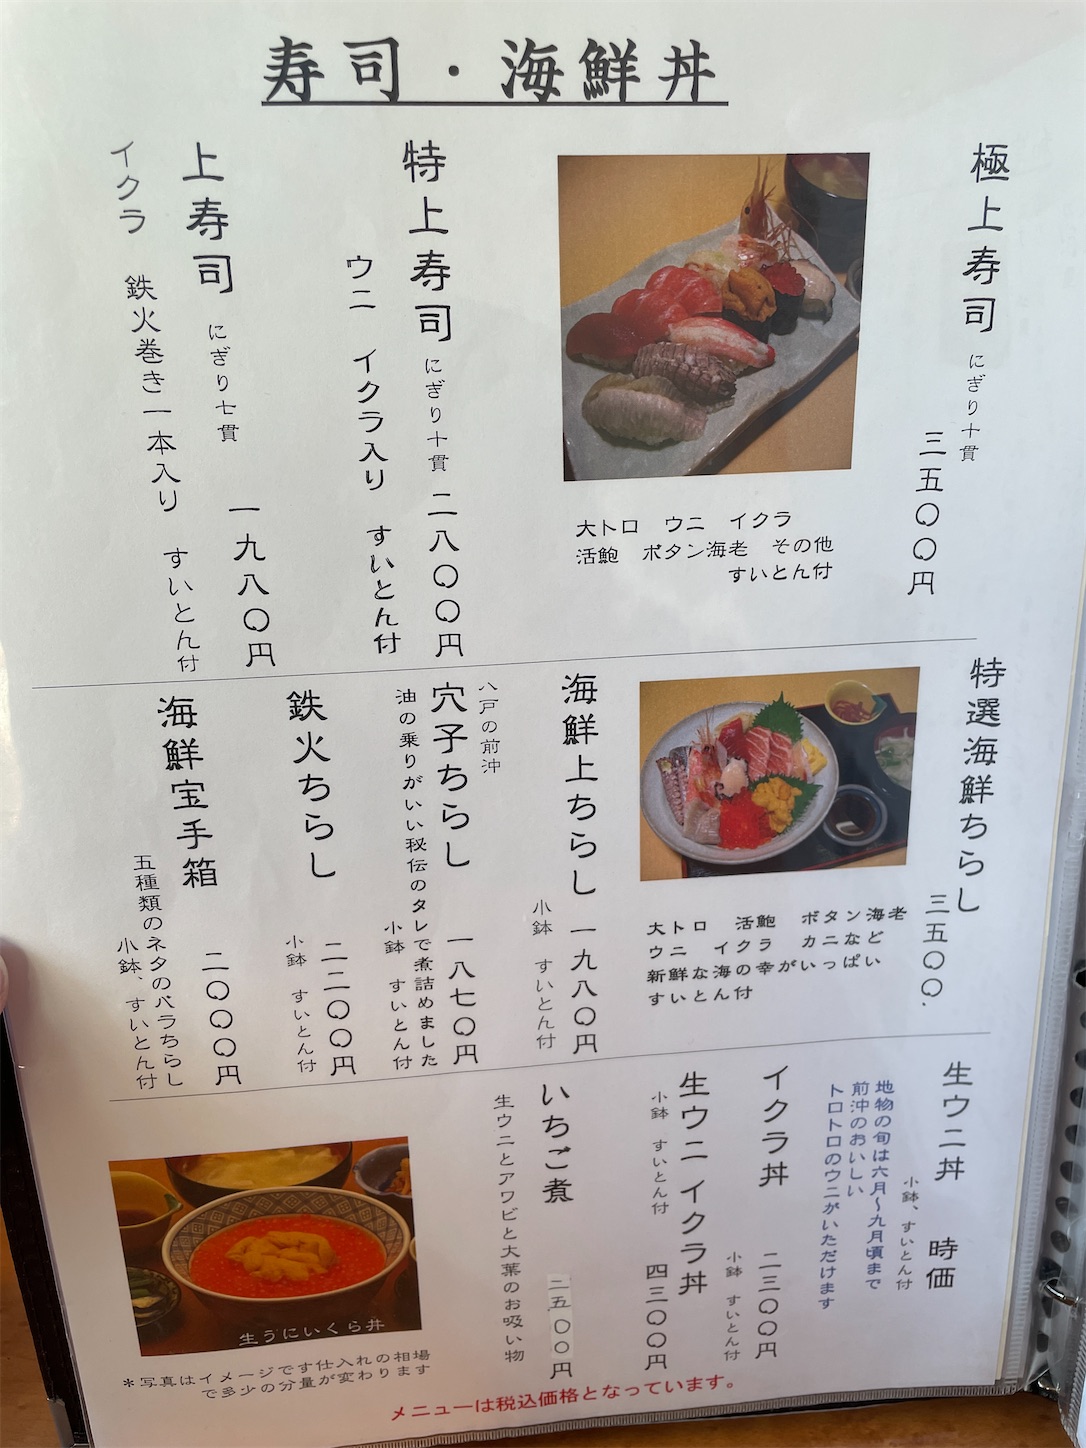 寿司・海鮮丼
極上寿司 にぎり十貫
三五〇〇円
大トロ ウニ イクラ
活鮑 ボタン海老 その他
すいとん付
特上寿司 にぎり十貫 二八〇〇円
ウニ イクラ入り すいとん付
上寿司 にぎり七貫
一九八〇円
イクラ 鉄火巻き一本入り すいとん付
特選海鮮ちらし
三五〇〇
大トロ 活鮑 ボタン海老
ウニ イクラ カニなど
新鮮な海の幸がいっぱい
すいとん付
海鮮上ちらし 一九八〇円
小鉢 すいとん付
八戸の前沖
穴子ちらし 一八七〇円
油の乗りがいい秘伝のタレで煮詰めました
小鉢 すいとん付
鉄火ちらし 二二〇〇円
小鉢 すいとん付
海鮮宝手箱 二〇〇〇円
五種類のネタのバラちらし
小鉢、すいとん付
生ウニ丼 時価
小鉢、すいとん付
地物の旬は六月～九月頃まで
前沖のおいしい
トロトロのウニがいただけます
イクラ丼 二三〇〇円
小鉢 すいとん付
生ウニイクラ丼 四三〇〇円
小鉢 すいとん付
いちご煮 二五〇〇円
生ウニとアワビと大葉のお吸い物
生うにいくら丼
＊写真はイメージです仕入れの相場
で多少の分量が変わります
メニューは税込価格となっています。